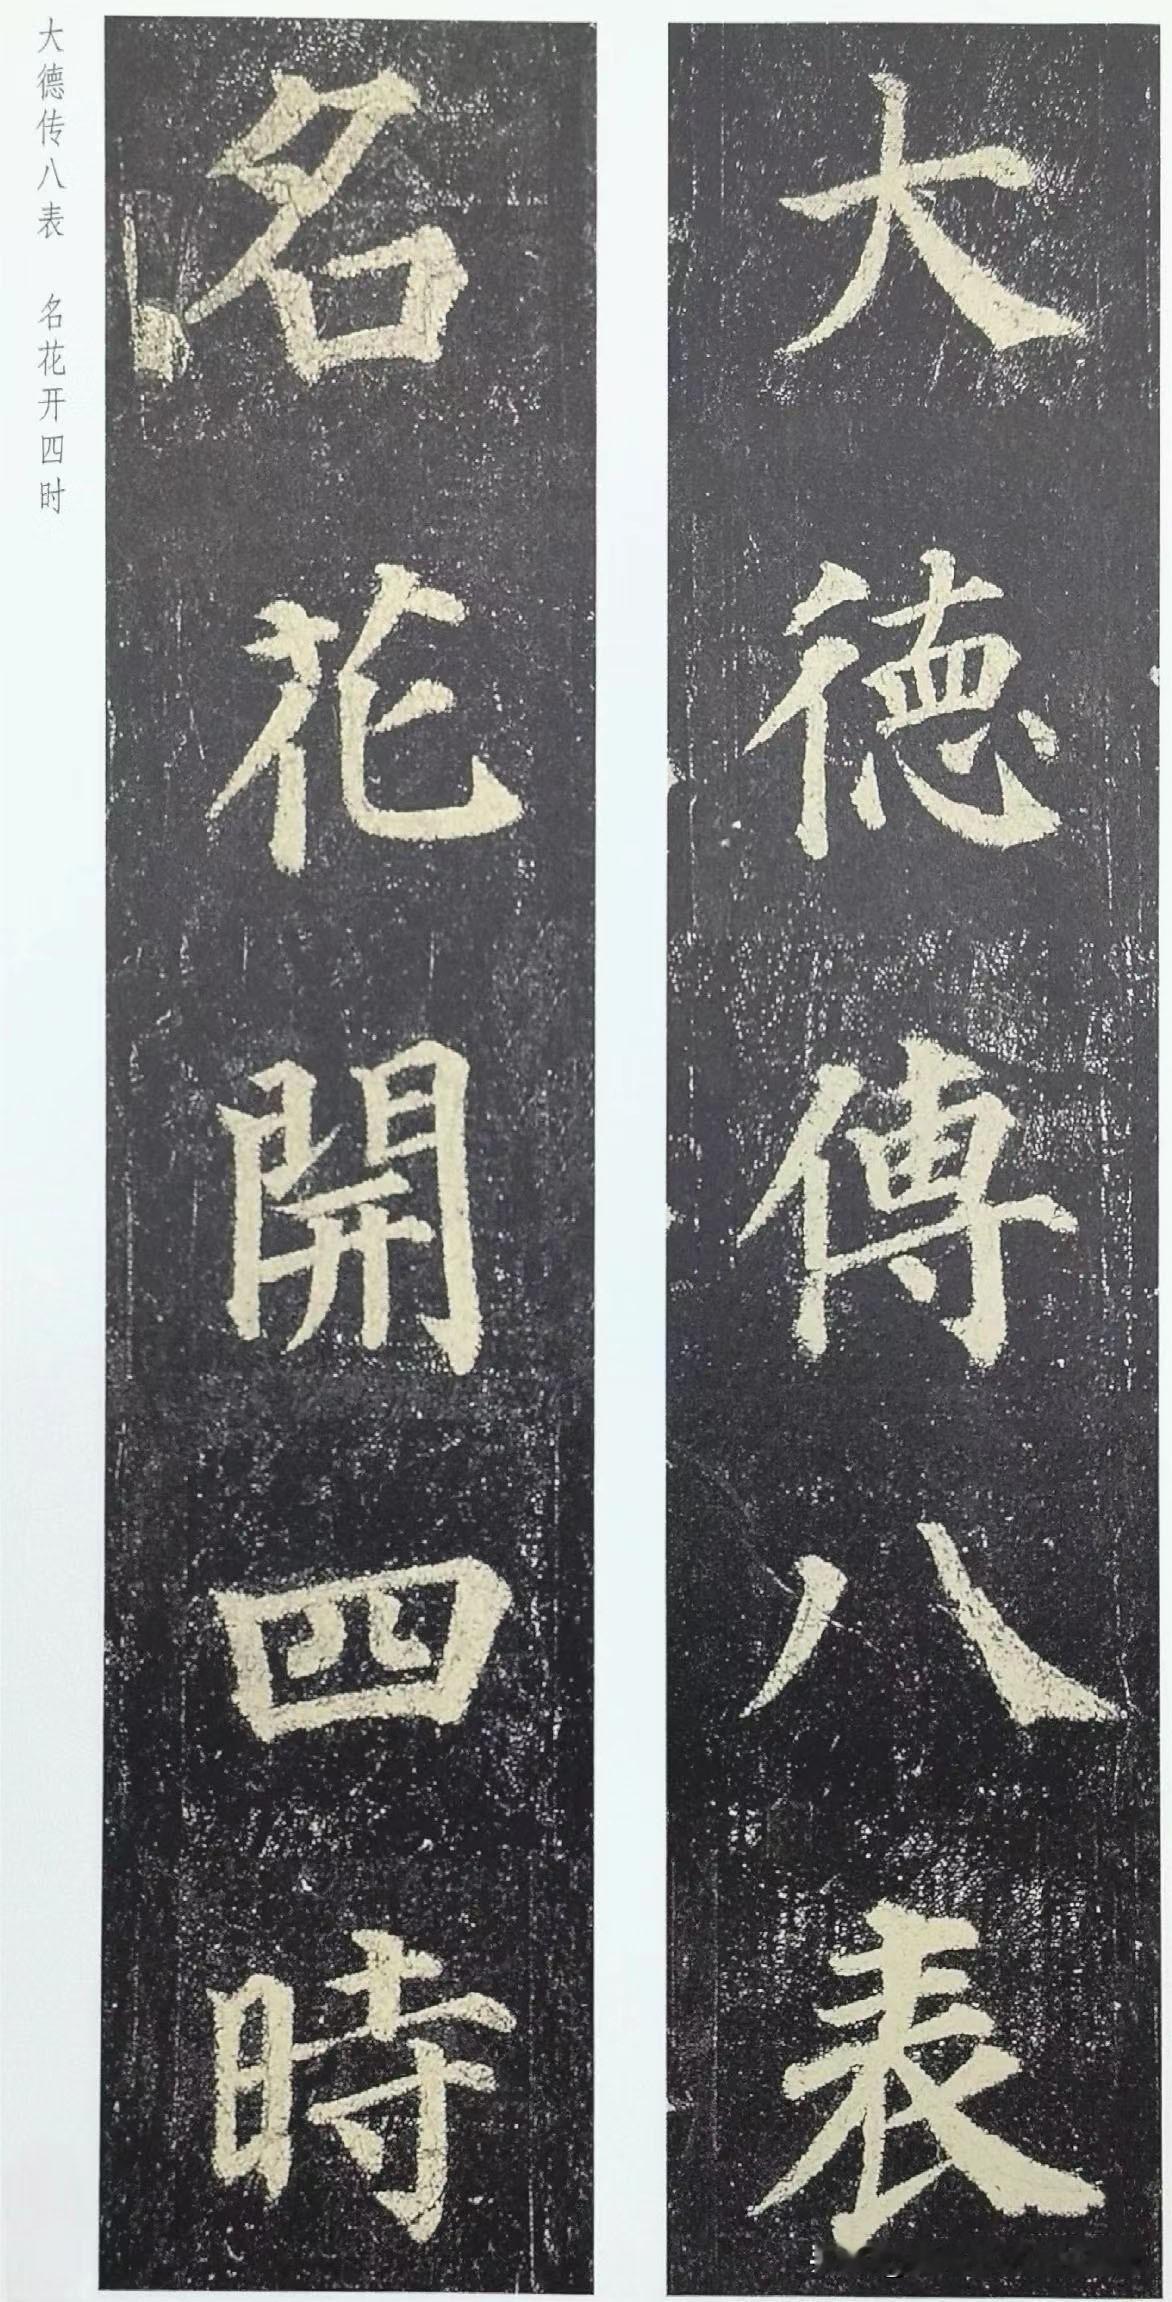 大德傳八表
名花開四時
大德传八表 名花开四时